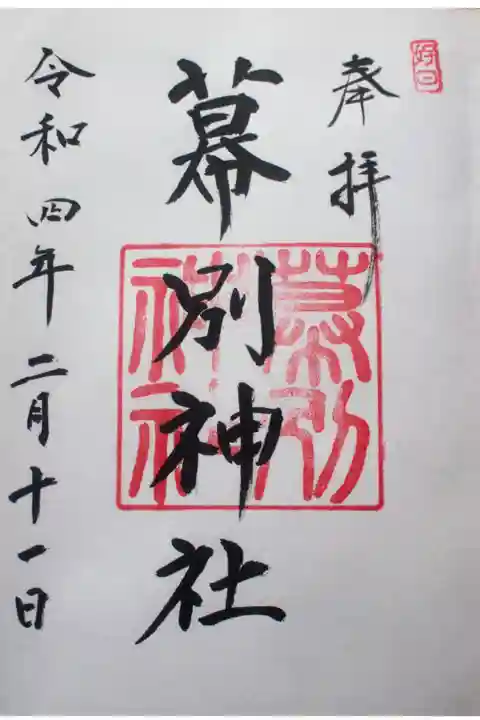 奉拝
幕別神社
幕別神社
令和四年二月十一日